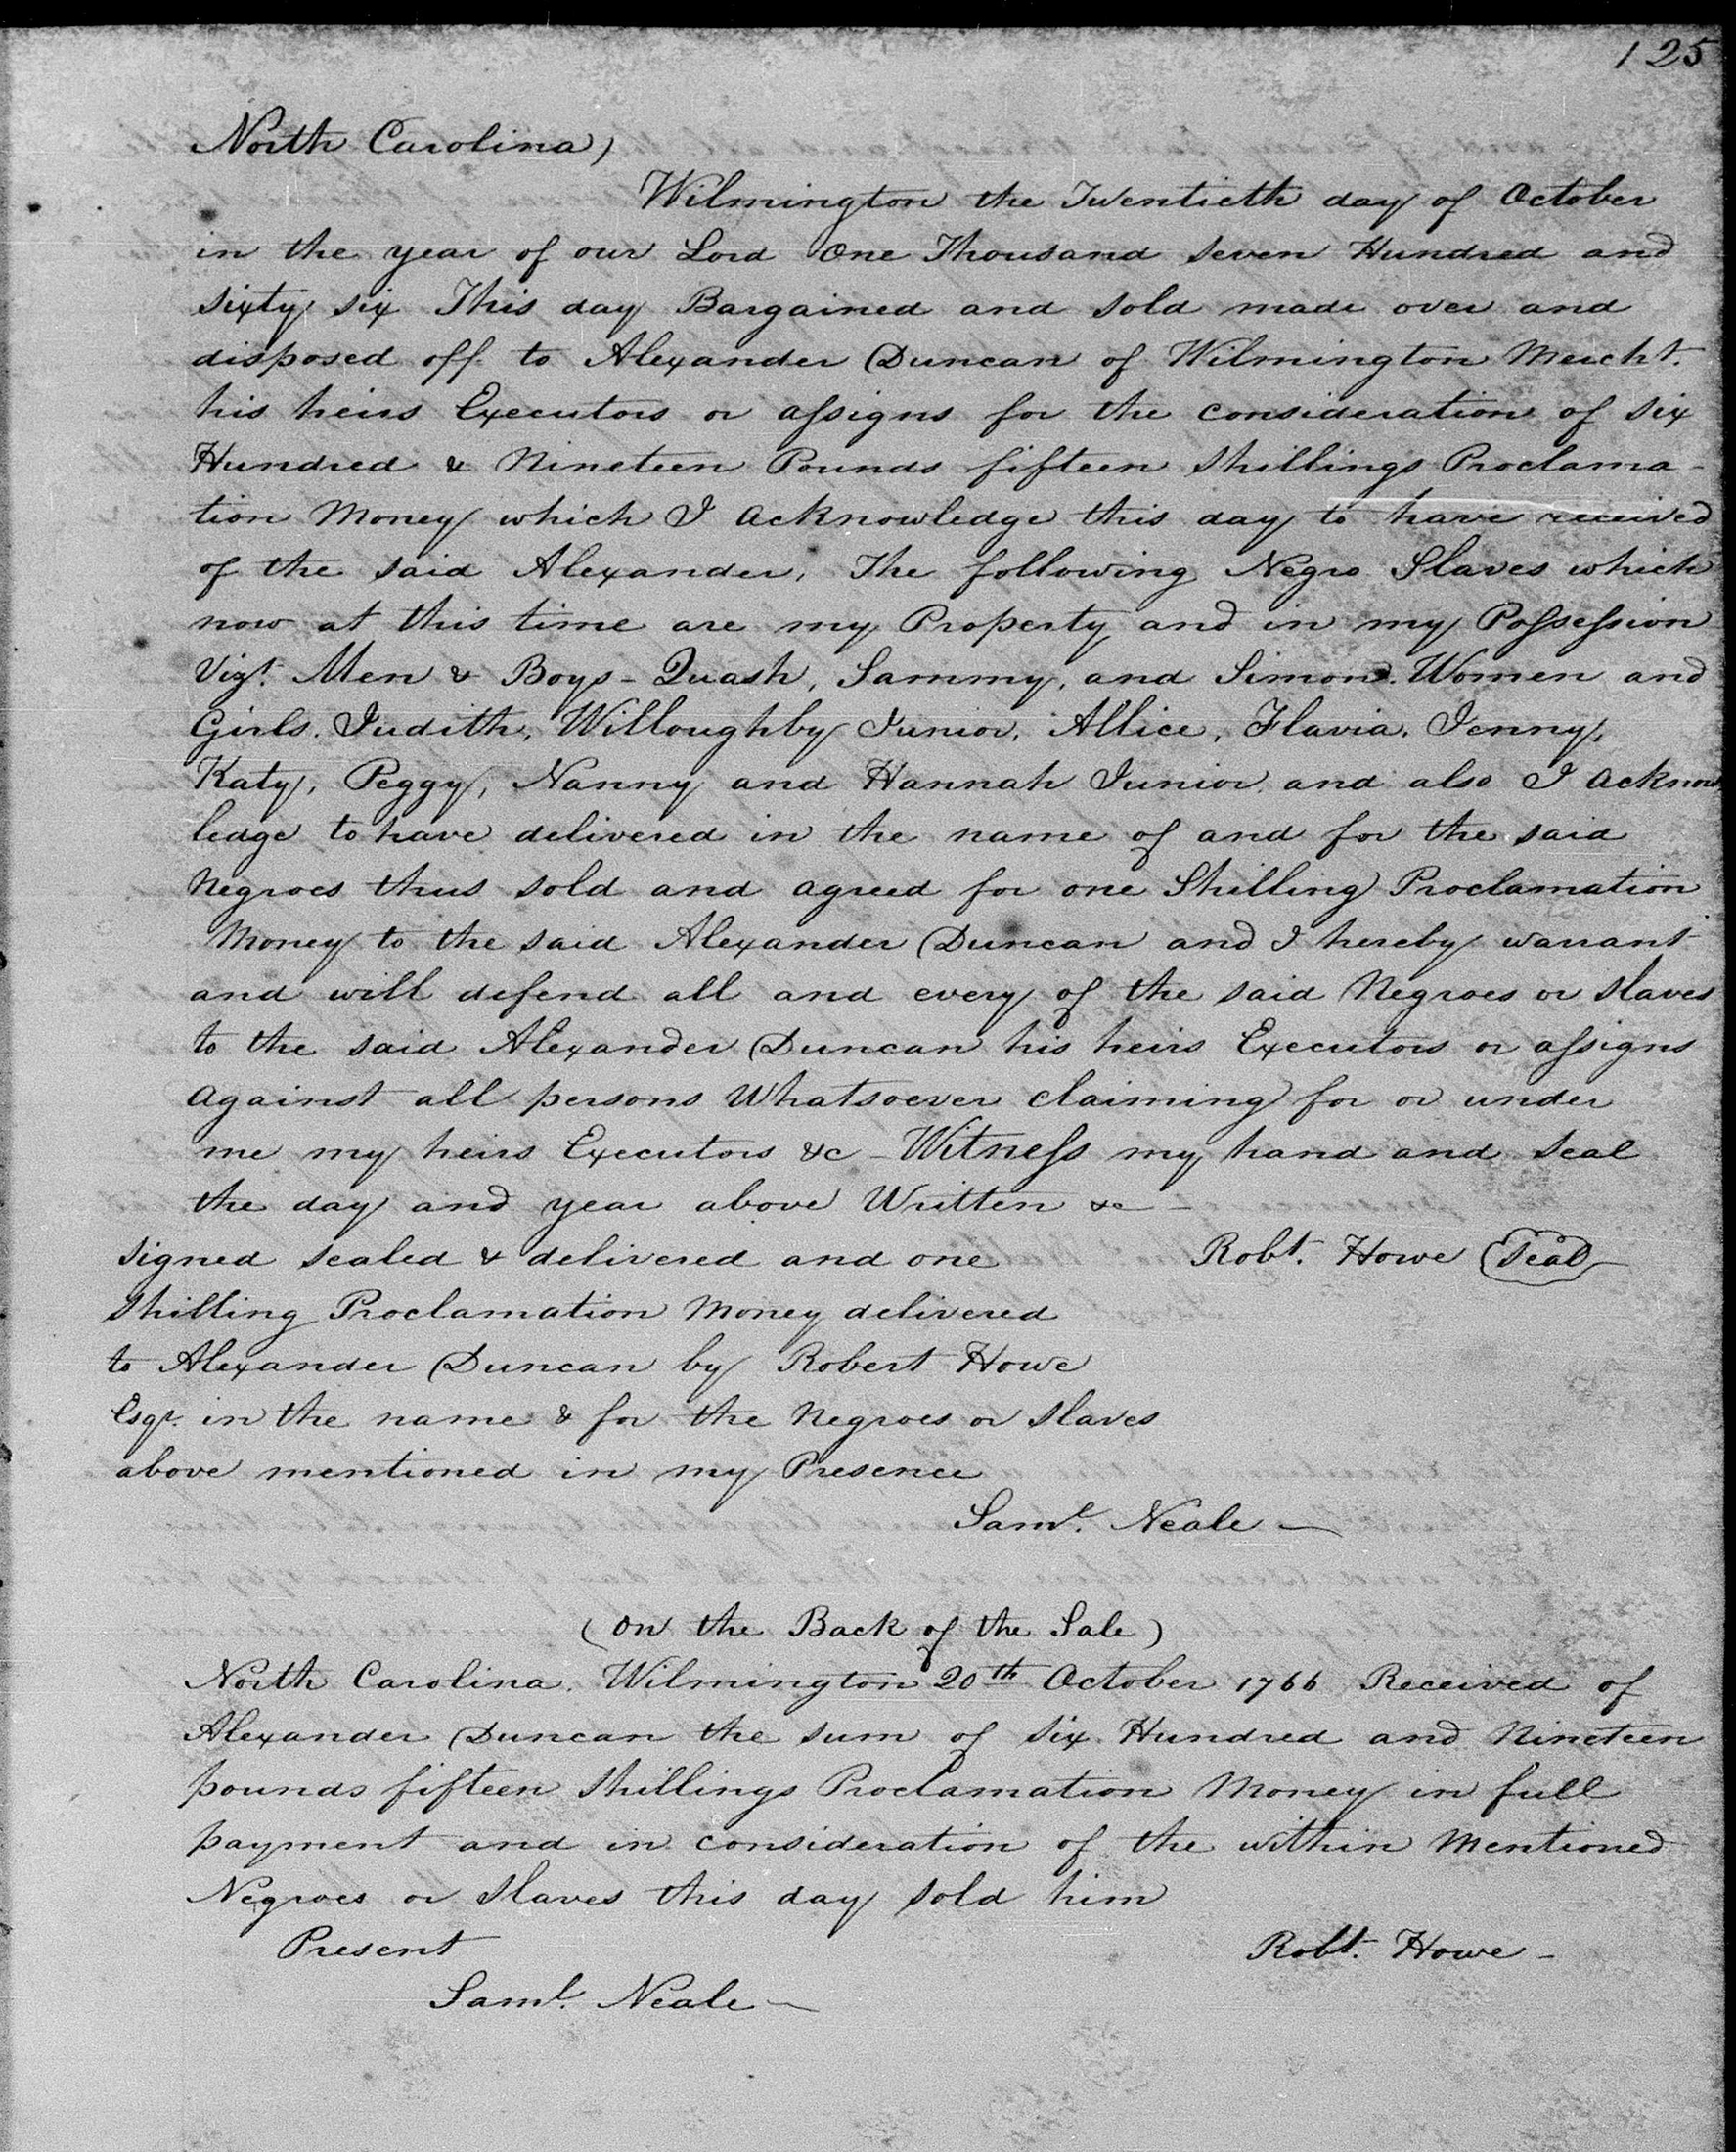 125
North Carolina)
Wilmington the Twentieth day of October
in the year of our Lord One Thousand seven Hundred and
sixty six This day Bargained and sold made over and
disposed off to Alexander Duncan of Wilmington Mercht.
his heirs Executors or assigns for the consideration of six
Hundred & Nineteen Pounds fifteen shillings Proclama-
tion Money which I acknowledge this day to have received
of the said Alexander, The following Negro Slaves which
now at this time are my Property and in my Possession
Vizt. Men & Boys - Quash, Sammy, and Simon. Women and
Girls. Judith, Willoughby Junior, Allice, Flavia, Jenny,
Katy, Peggy, Nanny and Hannah Junior, and also I acknow
ledge to have delivered in the name of and for the said
Negroes thus sold and agreed for one Shilling Proclamation
Money to the said Alexander Duncan and I hereby warrant
and will defend all and every of the said Negroes or slaves
to the said Alexander Duncan his heirs Executors or assigns
against all persons Whatsoever claiming for or under
me my heirs Executors &c - Witness my hand and seal
the day and year above Written &c -
signed sealed & delivered and one Robt. Howe (Seal)
shilling Proclamation Money delivered
to Alexander Duncan by Robert Howe
Esqr. in the name & for the Negroes or slaves
above mentioned in my Presence
Saml. Neale -
(on the Back of the Sale)
North Carolina. Wilmington 20th October 1766 Received of
Alexander Duncan the sum of six Hundred and Nineteen
pounds fifteen shillings Proclamation Money in full
payment and in consideration of the within Mentioned
Negroes or slaves this day sold him
Present Robt. Howe -
Saml. Neale -